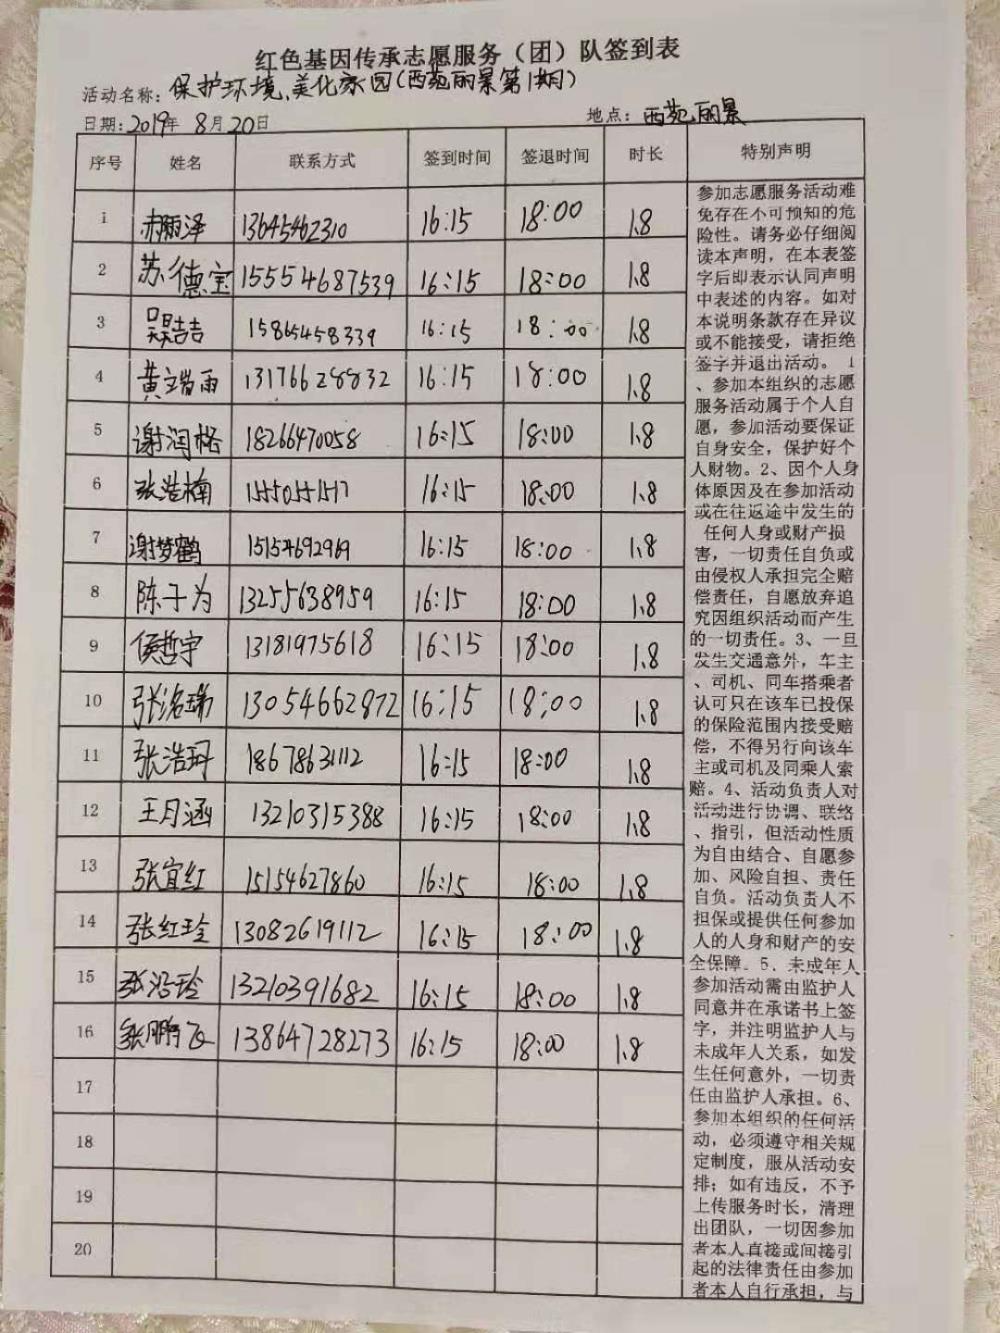 红色基因传承志愿服务（团）队签到表
活动名称：保护环境、美化家园(西苑丽景第1期)
日期：2019年 8月20日 地点：西苑丽景
序号 姓名 联系方式 签到时间 签退时间 时长 特别声明
1 郝丽泽 13645462310 16:15 18:00 1.8
2 苏德宝 15554687539 16:15 18:00 1.8
3 吴吉吉 15865458339 16:15 18:00 1.8
4 黄瑞雨 13176628832 16:15 18:00 1.8
5 谢润格 18266470058 16:15 18:00 1.8
6 张浩楠 16:15 18:00 1.8
7 谢梦鹤 15154692969 16:15 18:00 1.8
8 陈子为 13255638959 16:15 18:00 1.8
9 侯哲宇 13181975618 16:15 18:00 1.8
10 张洺瑞 13054662872 16:15 18:00 1.8
11 张浩珂 18678631112 16:15 18:00 1.8
12 王月涵 13210315388 16:15 18:00 1.8
13 张宜红 15154627860 16:15 18:00 1.8
14 张红玲 13082619112 16:15 18:00 1.8
15 张浩玲 13210391682 16:15 18:00 1.8
16 张鹏飞 13864728273 16:15 18:00 1.8
17
18
19
20
参加志愿服务活动难
免存在不可预知的危
险性。请务必仔细阅
读本声明，在本表签
字后即表示认同声明
中表述的内容。如对
本说明条款存在异议
或不能接受，请拒绝
签字并退出活动。 1
、参加本组织的志愿
服务活动属于个人自
愿，参加活动要保证
自身安全，保护好个
人财物。2、因个人身
体原因及在参加活动
或在往返途中发生的
任何人身或财产损
害，一切责任自负或
由侵权人承担完全赔
偿责任，自愿放弃追
究因组织活动而产生
的一切责任。3、一旦
发生交通意外，车主
、司机、同车搭乘者
认可只在该车已投保
的保险范围内接受赔
偿，不得另行向该车
主或司机及同乘人索
赔。4、活动负责人对
活动进行协调、联络
、指引，但活动性质
为自由结合、自愿参
加、风险自担、责任
自负。活动负责人不
担保或提供任何参加
人的人身和财产的安
全保障。5、未成年人
参加活动需由监护人
同意并在承诺书上签
字，并注明监护人与
未成年人关系，如发
生任何意外，一切责
任由监护人承担。6、
参加本组织的任何活
动，必须遵守相关规
定制度，服从活动安
排；如有违反，不予
上传服务时长，清理
出团队，一切因参加
者本人直接或间接引
起的法律责任由参加
者本人自行承担，与